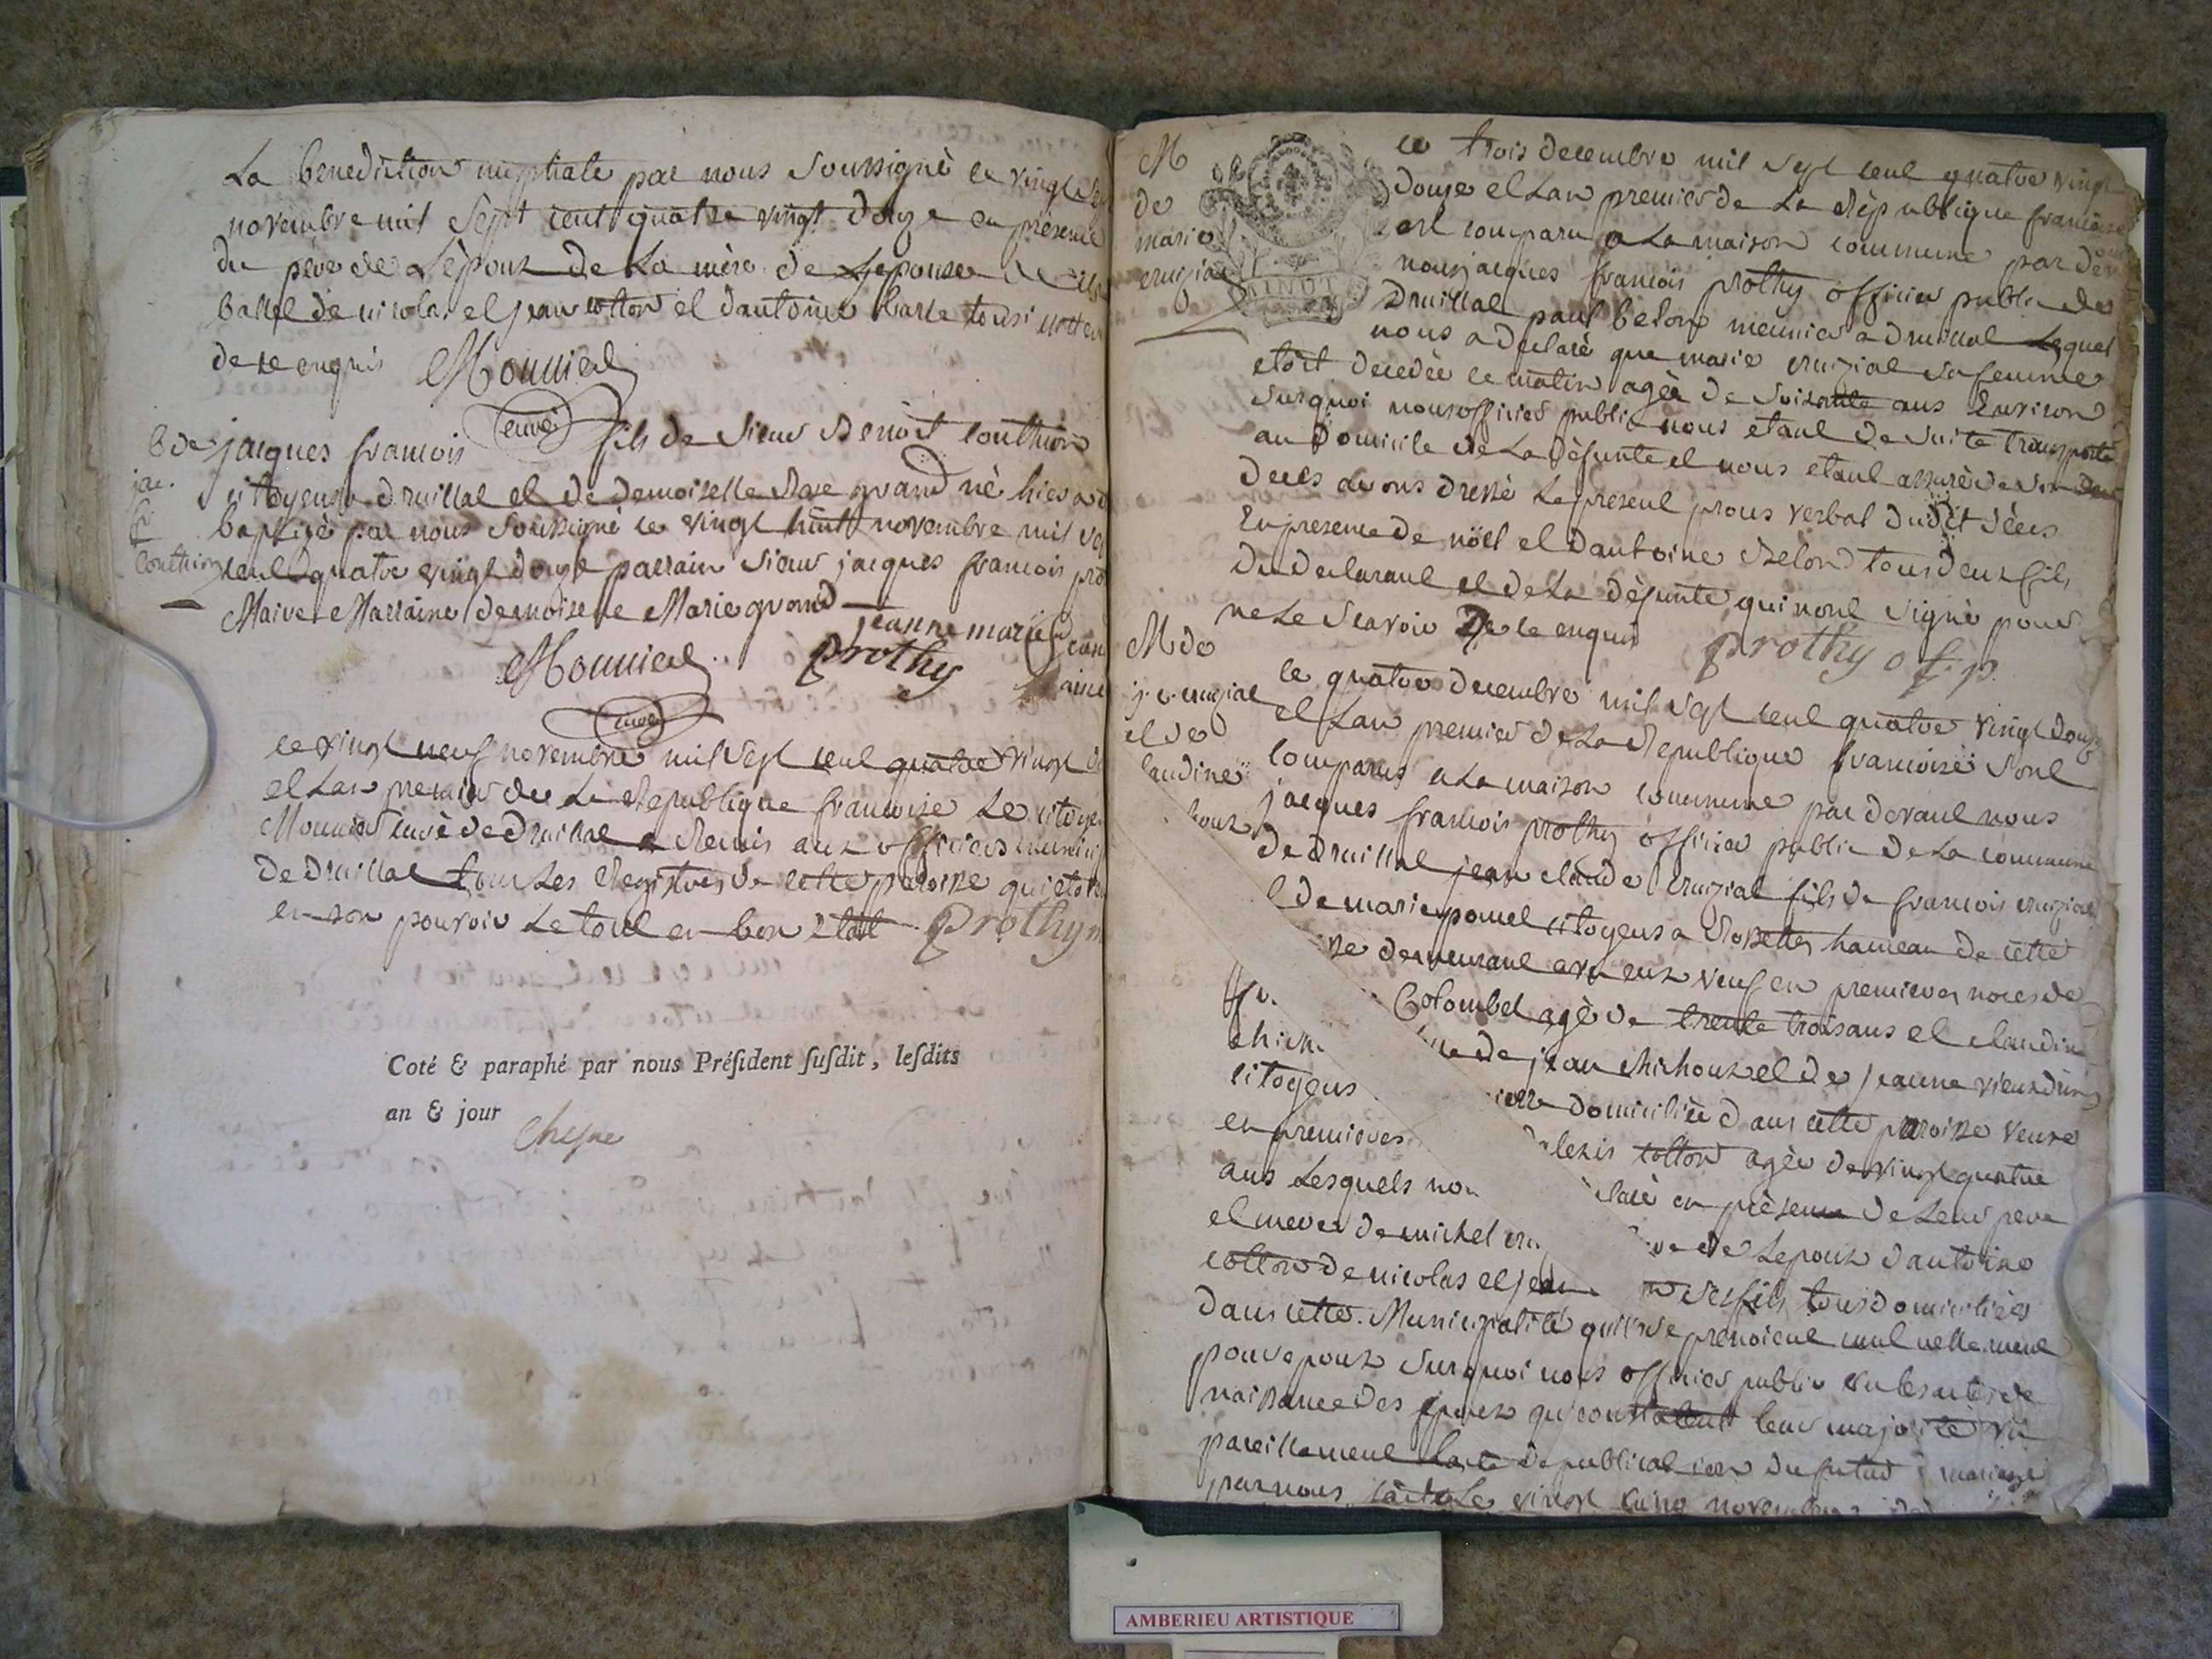 La benediction nuptiale par nous Soussigné ce vingt
novembre mil Sept cent quatre vingt douze en présence
du pere de Lépoux de La mére de Lepouse
ballet de nicolas et jean cotton et dantoine barle
de ce enquis Monnier
curé
B de jacques francois fils de Sieur Benoit couthion
jac. citoyens a druillat et de demoiselle Rose grand né hier
fr. baptizé par nous Soussigné ce vingt huit novembre mil
couthion cent quatre vingt douze parrain Sieur jacques francois
Maire Marraine demoiselle Marie grand
jeanne marie
Monnier prothy
curé
ce vingt neuf novembre mil Sept cent quatre vingt
et Lan premier de La Republique francoise Le citoyen
Monnier curé de Druillat a Remis aux officiers
de Druillat tous Les Registres de cette paroisse qui
en son pouvoir Le tout en bon état Prothy
Coté & paraphé par nous Préſident ſuſdit, leſdits
an & jour
M
de
marie
cruzial
ce trois decembre mil Sept cent quatre vingt
douze et Lan premier de La République francoise
est comparu a La maison commune par
nous jacques francois prothy officier public de
Druillat paul belon meunier a druillat Lequel
nous a declaré que marie cruzial sa femme
etoit decedée ce matin agée de Soixante ans Environ
Surquoi nous officier public nous etant de Suite transporté
au Domicile de La défunte et nous etant assuré de Son
deces avons dressé Le present procès verbal dudit décès
En presence de nöel et dantoine Belon tous deux fils
du declarant et de La défunte qui nont Signé pour
ne Le Scavoir De ce enquis prothy of. p.
M de
j. c. cruzial
et de
laudine
houx
ce quatre decembre mil Sept cent quatre vingt douze
et Lan premier de La Republique francoise Sont
comparus a La maison commune par devant nous
jacques francois prothy officier public de La commune
de druillat jean claude cruzial fils de francois cruzial
de marie pomel citoyens a Rossettes hameau de cette
demeurant avec eux veuf en premieres noces de
Colombet agé de trente trois ans et claudine
de jean chichoux et de jeanne vieux
chich
citoyens domiciliée dans cette paroisse veuve
en premieres alexis cotton agée de vingt quatre
ans Lesquels en présence de Leur pere
et mere de michel de Lepoux dantoine
cotton de nicolas et jean Ses fils tous domiciliés
dans cette Municipalité quils Se prenoient mutuellement
pour epoux Surquoi nous officier public vu les actes de
naissance des epoux qui constatent leur majorité vu
pareillement Lacte de publication du futur mariage
par nous Le vingt cinq novembre
AMBERIEU ARTISTIQUE